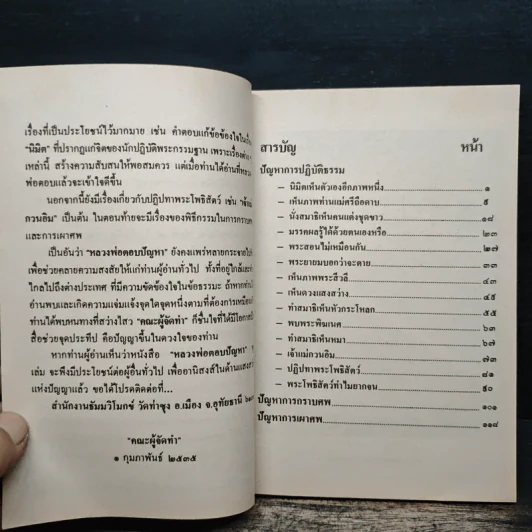 เรื่องที่เป็นประโยชน์ไว้มากมาย เช่น คำตอบแก้ข้อข้องใจใน
"นิมิต" ที่ปรากฏแก่จิตของนักปฏิบัติพระกรรมฐาน เพราะเรื่อง
เหล่านี้ สร้างความสับสนให้พอสมควร แต่เมื่อท่านได้อ่านที่
พ่อตอบแล้วจะเข้าใจดีขึ้น
นอกจากนี้ยังมีเรื่องเกี่ยวกับปฏิปทาพระโพธิสัตว์ เช่น "เจ้าแม่
กวนอิม" เป็นต้น ในตอนท้ายจะมีเรื่องของพิธีกรรมในการกราบศพ
และการเผาศพ
เป็นอันว่า "หลวงพ่อตอบปัญหา" ยังคงแพร่หลายกระจายไป
เพื่อช่วยคลายความสงสัยให้แก่ท่านผู้อ่านทั่วไป ทั้งที่อยู่ใกล้และ
ไกลไปถึงต่างประเทศ ที่มีความขัดข้องใจในข้อธรรมะ ถ้าหากท่าน
อ่านพบและเกิดความแจ่มแจ้งจุดใดจุดหนึ่งตามที่ต้องการเหมือน
ท่านได้พบหนทางที่สว่างไสว "คณะผู้จัดทำ" ก็ชื่นใจที่ได้มีโอกาส
สื่อช่วยจุดประทีป คือปัญญาขึ้นในดวงใจของท่าน
หากท่านผู้อ่านเห็นว่าหนังสือ "หลวงพ่อตอบปัญหา"
เล่ม จะพึงมีประโยชน์ต่อผู้อื่นทั่วไป เพื่ออานิสงส์ในด้านแสง
แห่งปัญญาแล้ว ขอได้โปรดติดต่อที่...
สำนักงานธัมมวิโมกข์ วัดท่าซุง อ.เมือง จ.อุทัยธานี
"คณะผู้จัดทำ"
๑ กุมภาพันธ์ ๒๕๓๕
สารบัญ หน้า
ปัญหาการปฏิบัติธรรม
– นิมิตเห็นตัวเองอีกภาพหนึ่ง ๑
– เห็นภาพท่านแม่ศรีถือดาบ ๕
– นั่งสมาธิเห็นคนแต่งชุดขาว ๑๘
– มรรคผลรู้ได้ด้วยตนเองหรือ ๒๓
– พระสอนไม่เหมือนกัน ๒๗
– พระยายมบอกว่าจะตาย ๓๓
– เห็นภาพพระสีวลี ๔๓
– เห็นดวงแสงสว่าง ๔๕
– ทำสมาธิเห็นหัวกระโหลก ๕๕
– พบพระพิฆเนศ ๖๓
– ทำสมาธิเห็นหมา ๖๗
– เจ้าแม่กวนอิม ๗๓
– ปฏิปทาพระโพธิสัตว์ ๘๑
– พระโพธิสัตว์ทำไมยากจน ๙๐
ปัญหาการกราบศพ ๑๐๑
ปัญหาการเผาศพ ๑๑๘